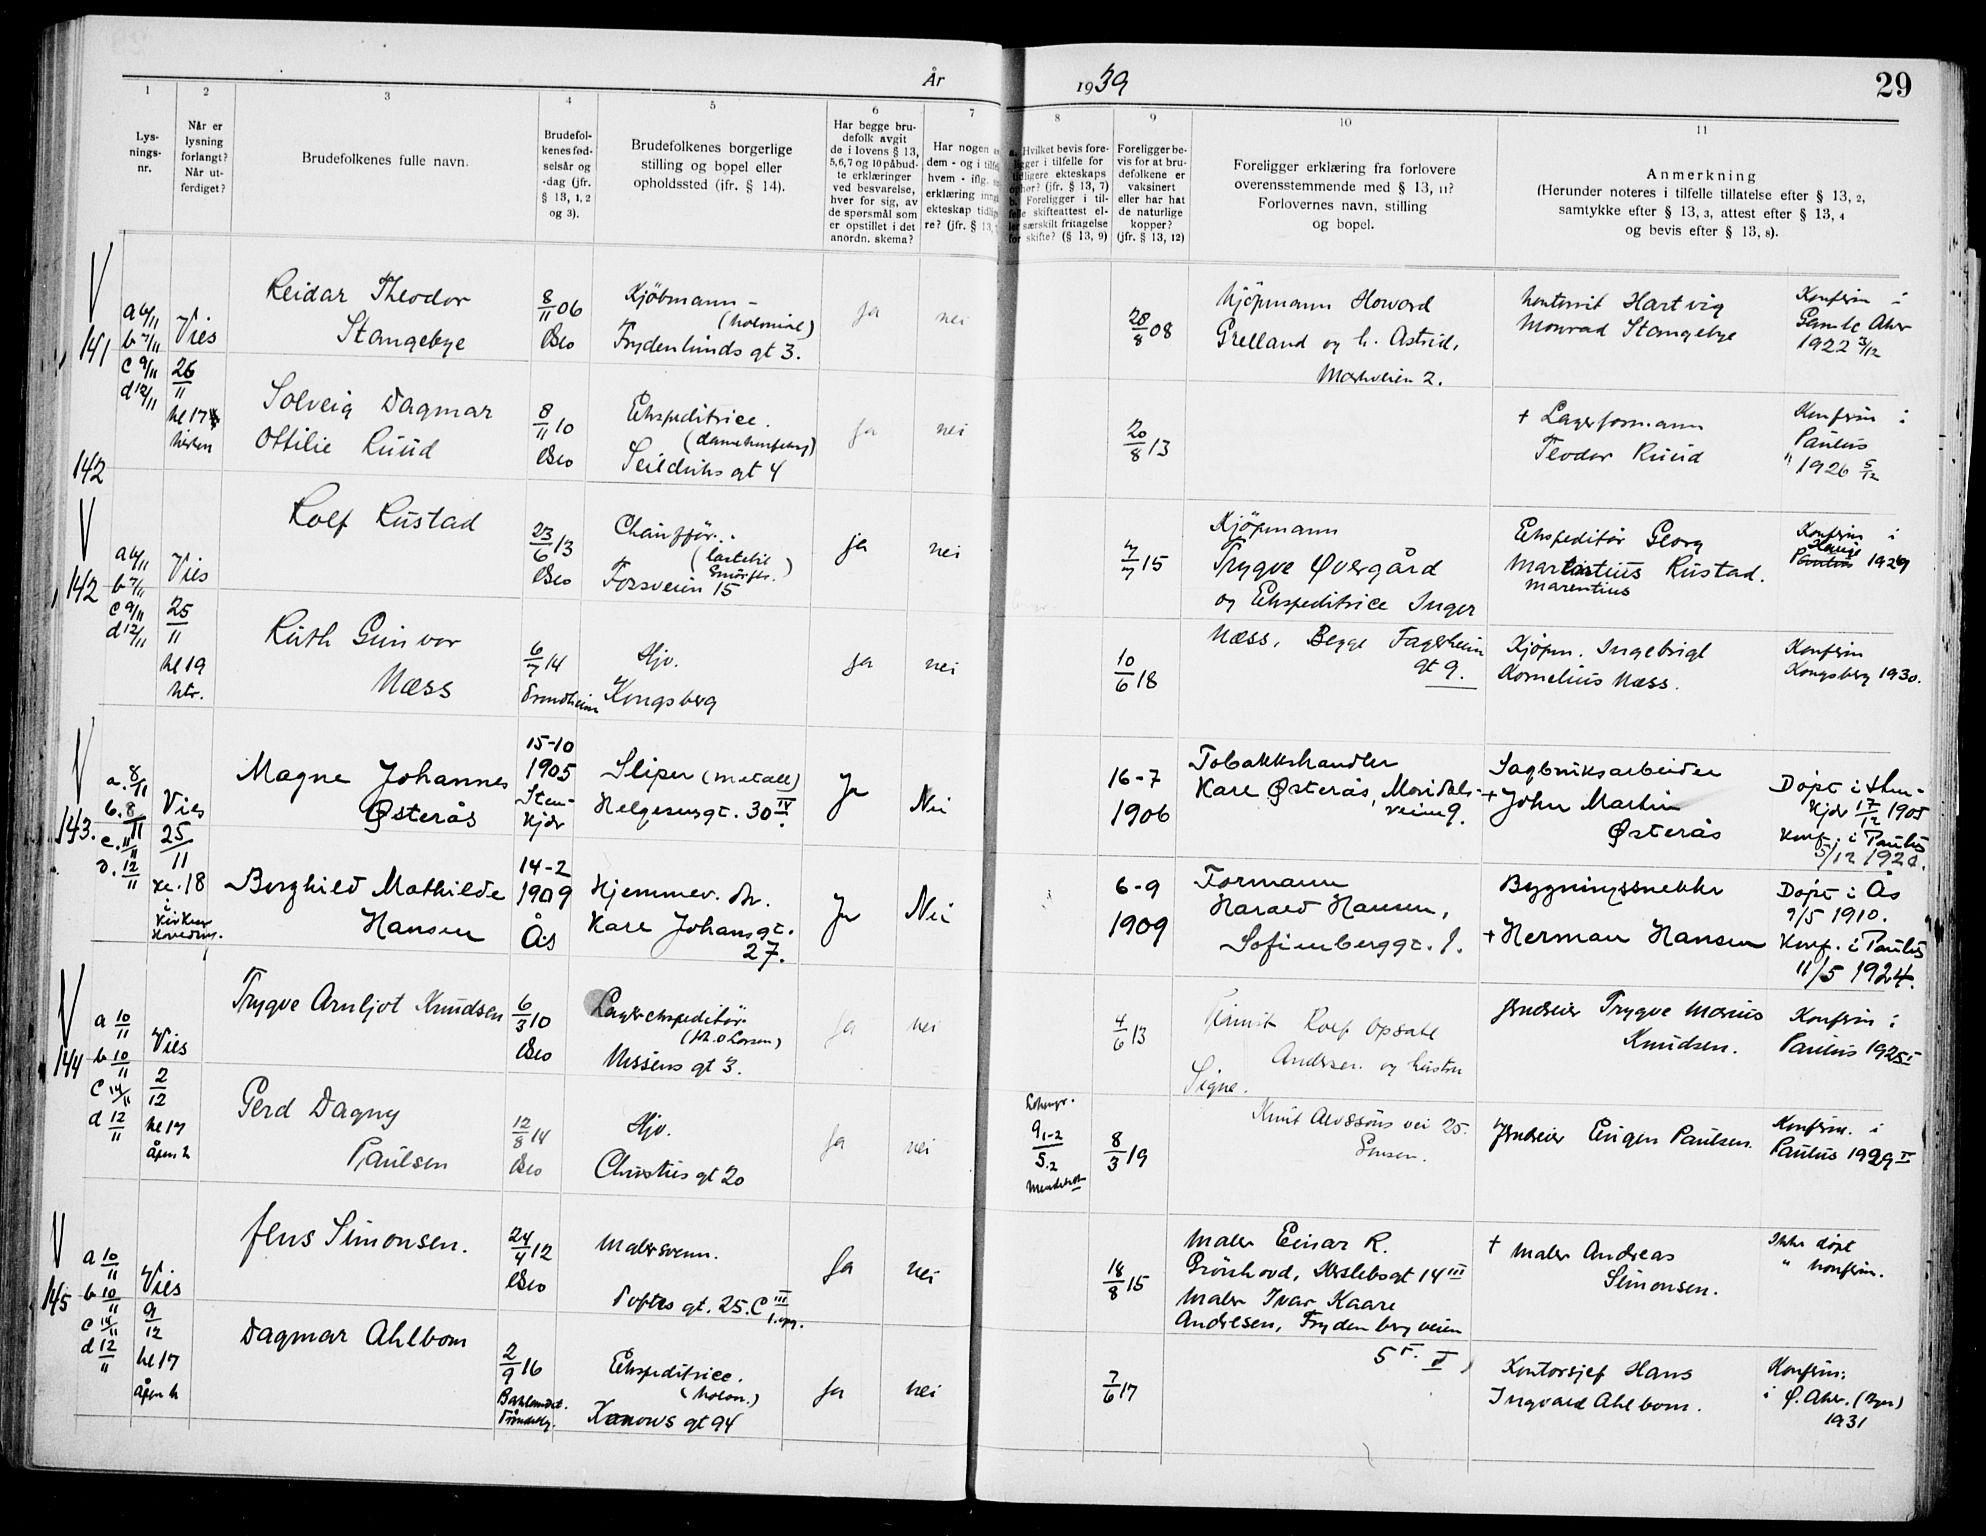 År 1939
29
1 2 3 4 5 6 7 8 9 10 11
Lys-
nings-
nr.
Når er
lysning
forlangt?
Når ut-
ferdiget?
Brudefolkenes fulle navn.
Brudefol-
kenes fød-
selsår og
-dag (jfr.
§ 13, 1, 2
og 3).
Brudefolkenes borgerlige
stilling og bopel eller
opholdssted (jfr. § 14).
Har begge bru-
defolk avgit
de i lovens § 13,
5,6,7 og 10 påbud-
te erklæringer
ved besvarelse,
hver for sig, av
de spørsmål som
er opstillet i det
anordn. skema?
Har nogen
dem - og i
hvem - iflg.
erklæring
ekteskap
re? (jfr. § 13,
a. Hvilket bevis fore-
ligger i tilfelle for
tidligere ekteskaps
ophør? (jfr. § 13, 7)
b. Foreligger i til-
felle skifteattest el-
ler særskilt fritagelse
for skifte? (§ 13, 9)
Foreligger be-
vis for at bru-
defolkene er
vaksinert
eller har hat
de naturlige
kopper?
(jfr. § 13, 12)
Foreligger erklæring fra forlovere
overensstemmende med § 13, 11?
Forlovernes navn, stilling
og bopel.
Anmerkning
(Herunder noteres i tilfelle tillatelse efter § 13, 2,
samtykke efter § 13, 3, attest efter § 13, 4
og bevis efter § 13, 8).
141
Vies
26/11
kl 17
Reidar Theodor
Stangebye
8/11 06
Oslo
Kjøbmann -
(kolonial)
Frydenlunds gt 3.
ja nei
28/8 08
Kjøpmann Howard
Grelland og h. Astrid,
2.
Hartvig
Monrad Stangebye
Konfirm i
Gamle Aker
1922 3/12
142
Solveig Dagmar
Ottilie Ruud
8/11 10
Oslo
Ekspeditrice.
Seilduks gt 4
ja nei
20/8 13
+ Lagerformann
Teodor Ruud
Konfirm i
Paulus
" 1926 5/12
142
Vies
25/11
kl 19
Rolf Rustad
23/6 13
Oslo
Chauffør.
(lastebil
)
Forsveien 15
ja nei
7/7 15
Kjøpmann
Trygve Øvergård
og Ekspeditrice Inger
Næss, Begge Fagerheim
gt 9.
Ekspeditør Georg
Rustad.
Marentius
Konfirm i
Hauge
Paulus 1929
Ruth Gunvor
Næss
6/7 14
Trondheim
Hjv.
Kongsberg
ja nei
10/6 18
Kjøpm. Ingebrigt
Kornelius Næss.
Konfirm
Kongsberg 1930.
143.
a. 8/11
b. 8/11
c. 11/11
d. 12/11
Vies
25/11
kl. 18
i
Magne Johannes
Østerås
15-10
1905
Sten-
kjær
Sliper (metall)
Helgesensgt. 30 IV.
Ja Nei
16-7
1906
Tobakkshandler
Kåre Østerås, Maridals-
veien 9.
Sagbruksarbeider
+ John Martin
Østerås
Døpt i Sten-
kjær 17/12 1905
Konf. i Paulus
5/12 1920.
Borghild Mathilde
Hansen
14-2
1909
Ås
Hjemmev. dtr.
Karl Johansgt.
27.
Ja Nei
6-9
1909
Formann
Harald Hansen,
Sofienberggt. 1.
Bygningssnekker
+ Herman Hansen
Døpt i Ås
9/5 1910.
Konf. i Paulus
11/5 1924.
144
a 10/11
b 10/11
c 14/11
d 12/11
Vies
2/12
kl 17
åpen k
Trygve Arnljot Knudsen
6/3 10
Oslo
Lagerekspeditør
Nissens gt 3.
ja nei
4/6 13
Rolf Opsahl
Andersen og hustru
Signe.
Knut Alvssøns vei 25.
Trygve Marius
Knudsen.
Konfirm i
Paulus 1925 I
Gerd Dagny
Paulsen
12/8 14
Oslo
Hjv.
Christies gt 20
ja nei
8/3 19
Eugen Paulsen.
Konfirm. i
Paulus 1929 II
145
a 10/11
b 10/11
c 14/11
d 12/11
Vies
9/12
kl 17
åpen k
Jens Simonsen.
24/4 12
Oslo
Malersvenn.
Toftes gt. 25. C III
ja nei
18/8 15
Maler Einar R.
Maler Ivar Kaare
Andresen, Frydenbergveien
5
+ Maler Andreas
Simonsen.
Ikke døpt
" konfirm.
Dagmar Ahlbom
2/9 16
Ekspeditrice.
(kolon.)
Kanows gt 94
ja nei
7/6 17
Kontorsjef Hans
Ingvald Ahlbom.
Konfirm.
i Ø. Aker.
1931